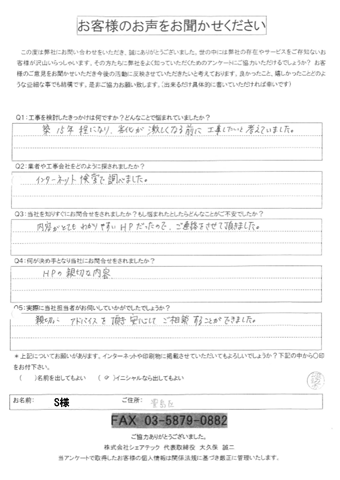 お客様のお声をお聞かせください
この度は弊社にお問い合わせをいただき、誠にありがとうございました。世の中には弊社の存在やサービスをご存知ないお
客様が沢山いらっしゃいます。その方たちに弊社をよく知っていただくためのアンケートにご協力いただけるでしょうか？お
客様のご意見をお聞かせいただき今後の活動に反映させていただきたいと考えております。良かったこと、嬉しかったことどのよ
うな些細な事でも結構です。是非ご協力お願い致します。（出来るだけ具体的に書いていただければ幸いです）
Q1：工事を検討したきっかけは何ですか？どんなことで悩まれていましたか？
築15年程になり、劣化が激しくなる前に工事したいと考えていました。
Q2：業者や工事会社をどのように探されましたか？
インターネット検索で調べました。
Q3：当社を知りすぐにお問合せをされましたか？もし悩まれたとしたらどんなことがご不安でしたか？
内容がとてもわかりやすいHPだったので、ご連絡させて頂きました。
Q4：何が決め手となり当社にお問合せをされましたか？
HPの親切な内容
Q5：実際に当社担当者がお伺いしていかがでしたでしょうか？
親切にアドバイスを頂き安心してご相談することができました。
＊上記についてお願いがあります。インターネットや印刷物に掲載させていただいてもよろしいでしょうか？下記の中から〇印
をお付下さい。
（　）名前を出してもよい　（〇）イニシャルなら出してもよい
お名前： S様 ご住所：
FAX 03-5879-0882
ご協力ありがとうございました。
株式会社シェアテック 代表取締役 大久保 誠二
当アンケートで取得したお客様の個人情報は関係法規に基づき厳正に管理いたします。